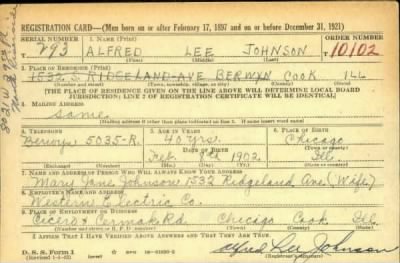 REGISTRATION CARD—(Men born on or after February 17, 1897 and on or before December 31, 1921)
SERIAL NUMBER 1. NAME (Print) ORDER NUMBER
793 ALFRED LEE JOHNSON 10,102
(First) (Middle) (Last)
2. PLACE OF RESIDENCE (Print)
1532 S RIDGELAND-AVE BERWYN COOK ILL
(Number and street) (Town, township, village, or city) (County) (State)
[THE PLACE OF RESIDENCE GIVEN ON THE LINE ABOVE WILL DETERMINE LOCAL BOARD
JURISDICTION; LINE 2 OF REGISTRATION CERTIFICATE WILL BE IDENTICAL]
3. MAILING ADDRESS
Same
[Mailing address if other than place indicated on line 2. If same insert word same]
4. TELEPHONE 5. AGE IN YEARS 6. PLACE OF BIRTH
Berwyn 5035-R. 40 yrs. Chicago
DATE OF BIRTH (Town or county)
Feb. 8th 1902 Ill.
(Exchange) (Number) (Mo.) (Day) (Yr.) (State or country)
7. NAME AND ADDRESS OF PERSON WHO WILL ALWAYS KNOW YOUR ADDRESS
Mary Jane Johnson 1532 Ridgeland Ave (Wife)
8. EMPLOYER'S NAME AND ADDRESS
Western Electric Co.
9. PLACE OF EMPLOYMENT OR BUSINESS
Cicero & Cermak Rd. Chicago Cook Ill.
(Number and street or R. F. D. number) (Town) (County) (State)
I AFFIRM THAT I HAVE VERIFIED ABOVE ANSWERS AND THAT THEY ARE TRUE.
D. S. S. Form 1
Alfred Lee Johnson
(Registrant's signature)